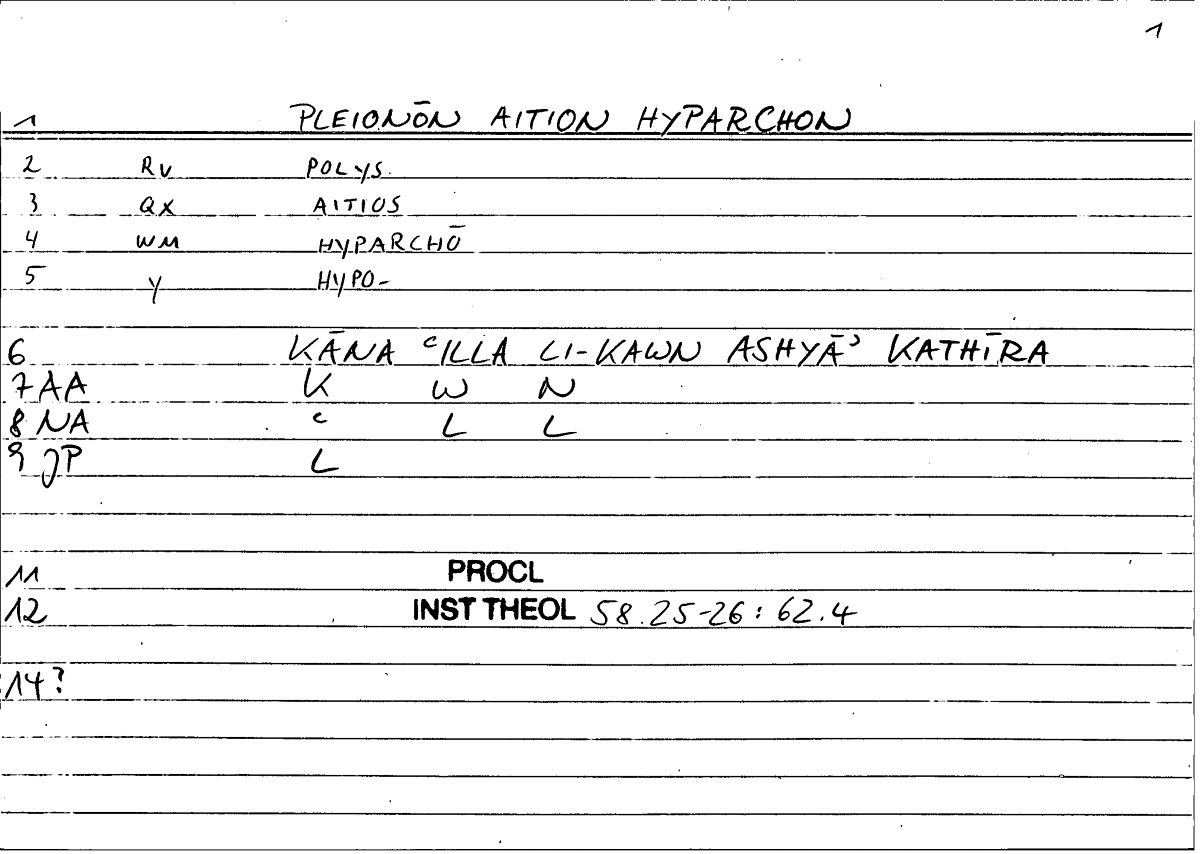 1
1 PLEIONŌN AITION HYPARCHON
2 RV POLYS.
3 QX AITIOS
4 WM HYPARCHŌ
5 Y HYPO-
6 KĀNA ʿILLA LI-KAWN ASHYĀʾ KATHĪRA
7 AA K W N
8 NA ʿ L L
9 JP L
11 PROCL
12 INST THEOL 58.25-26:62.4
14?